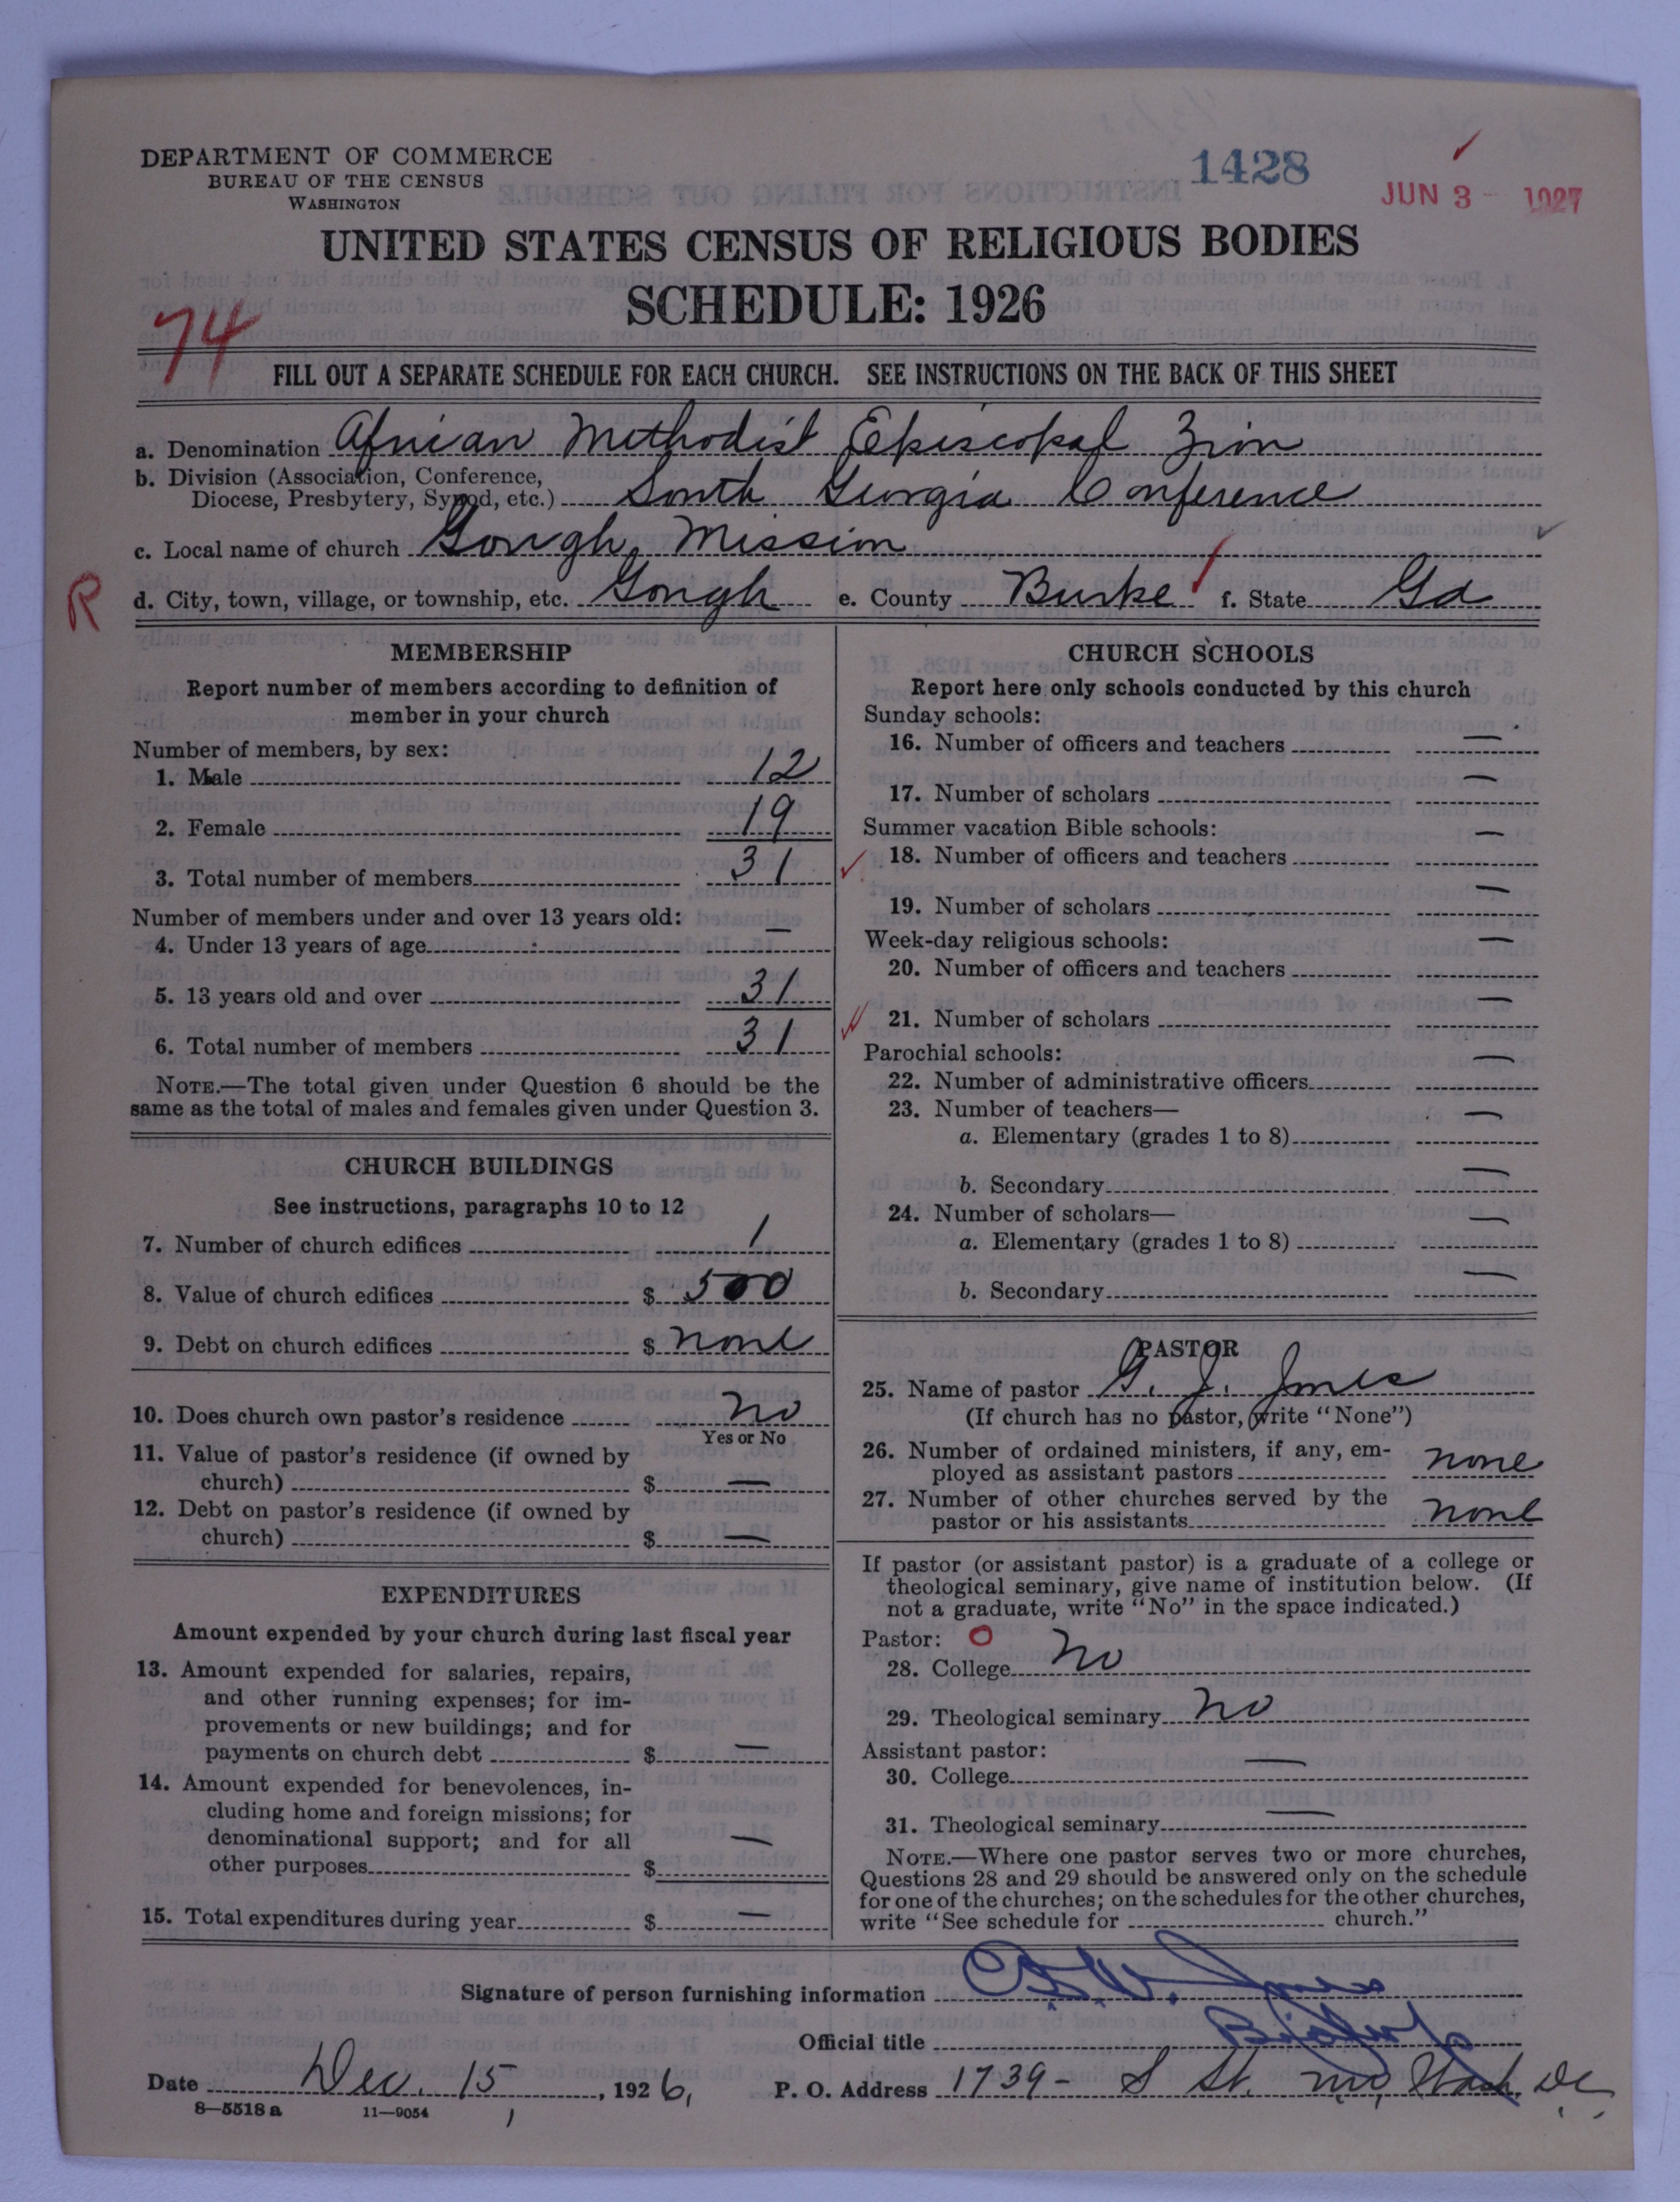 DEPARTMENT OF COMMERCE
BUREAU OF THE CENSUS
WASHINGTON
1428
JUN 3 - 1927
UNITED STATES CENSUS OF RELIGIOUS BODIES
SCHEDULE: 1926
74
FILL OUT A SEPARATE SCHEDULE FOR EACH CHURCH. SEE INSTRUCTIONS ON THE BACK OF THIS SHEET
a. Denomination African Methodist Episcopal Zion
b. Division (Association, Conference,
Diocese, Presbytery, Synod, etc.) South Georgia Conference
c. Local name of church Gough Mission
R
d. City, town, village, or township, etc. Gough e. County Burke f. State Ga
MEMBERSHIP
Report number of members according to definition of
member in your church
Number of members, by sex:
1. Male 12
2. Female 19
3. Total number of members 31
Number of members under and over 13 years old:
4. Under 13 years of age —
5. 13 years old and over 31
6. Total number of members 31
NOTE.—The total given under Question 6 should be the
same as the total of males and females given under Question 3.
CHURCH BUILDINGS
See instructions, paragraphs 10 to 12
7. Number of church edifices 1
8. Value of church edifices $ 500
9. Debt on church edifices $ none
10. Does church own pastor's residence no
Yes or No
11. Value of pastor's residence (if owned by
church) $ —
12. Debt on pastor's residence (if owned by
church) $ —
EXPENDITURES
Amount expended by your church during last fiscal year
13. Amount expended for salaries, repairs,
and other running expenses; for im-
provements or new buildings; and for
payments on church debt $ —
14. Amount expended for benevolences, in-
cluding home and foreign missions; for
denominational support; and for all
other purposes $ —
15. Total expenditures during year $ —
CHURCH SCHOOLS
Report here only schools conducted by this church
Sunday schools:
16. Number of officers and teachers —
17. Number of scholars —
Summer vacation Bible schools:
18. Number of officers and teachers —
19. Number of scholars —
Week-day religious schools:
20. Number of officers and teachers —
21. Number of scholars —
Parochial schools:
22. Number of administrative officers —
23. Number of teachers—
a. Elementary (grades 1 to 8) —
b. Secondary —
24. Number of scholars—
a. Elementary (grades 1 to 8) —
b. Secondary —
PASTOR
25. Name of pastor G. J. Jones
(If church has no pastor, write "None")
26. Number of ordained ministers, if any, em-
ployed as assistant pastors none
27. Number of other churches served by the
pastor or his assistants none
If pastor (or assistant pastor) is a graduate of a college or
theological seminary, give name of institution below. (If
not a graduate, write "No" in the space indicated.)
Pastor: O
28. College No
29. Theological seminary no
Assistant pastor:
30. College —
31. Theological seminary —
NOTE.—Where one pastor serves two or more churches,
Questions 28 and 29 should be answered only on the schedule
for one of the churches; on the schedules for the other churches,
write "See schedule for church."
Signature of person furnishing information Jones
Official title Bishop
Date Dec. 15, 1926, P. O. Address 1739- S St. nw, Wash, DC.
8—5518a 11—9054